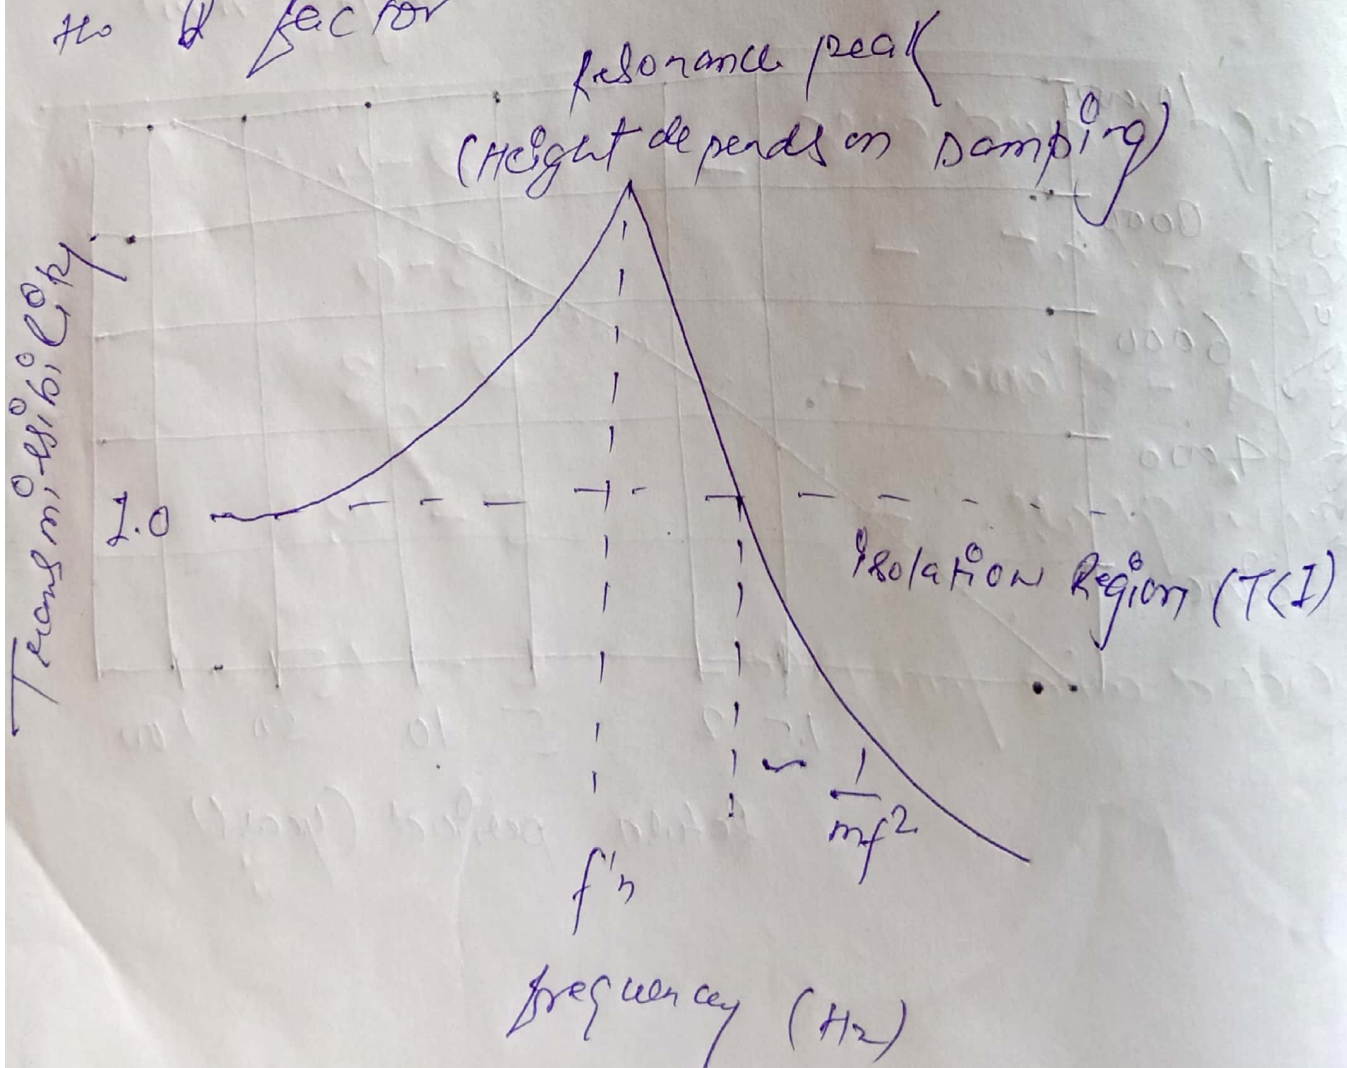 to Q factor
Resonance peak
(Height depends on Damping)
Transmissibility
1.0
Isolation Region (T<I)
~ 1/mf²
f'n
frequency (Hz)
6000
4000
10